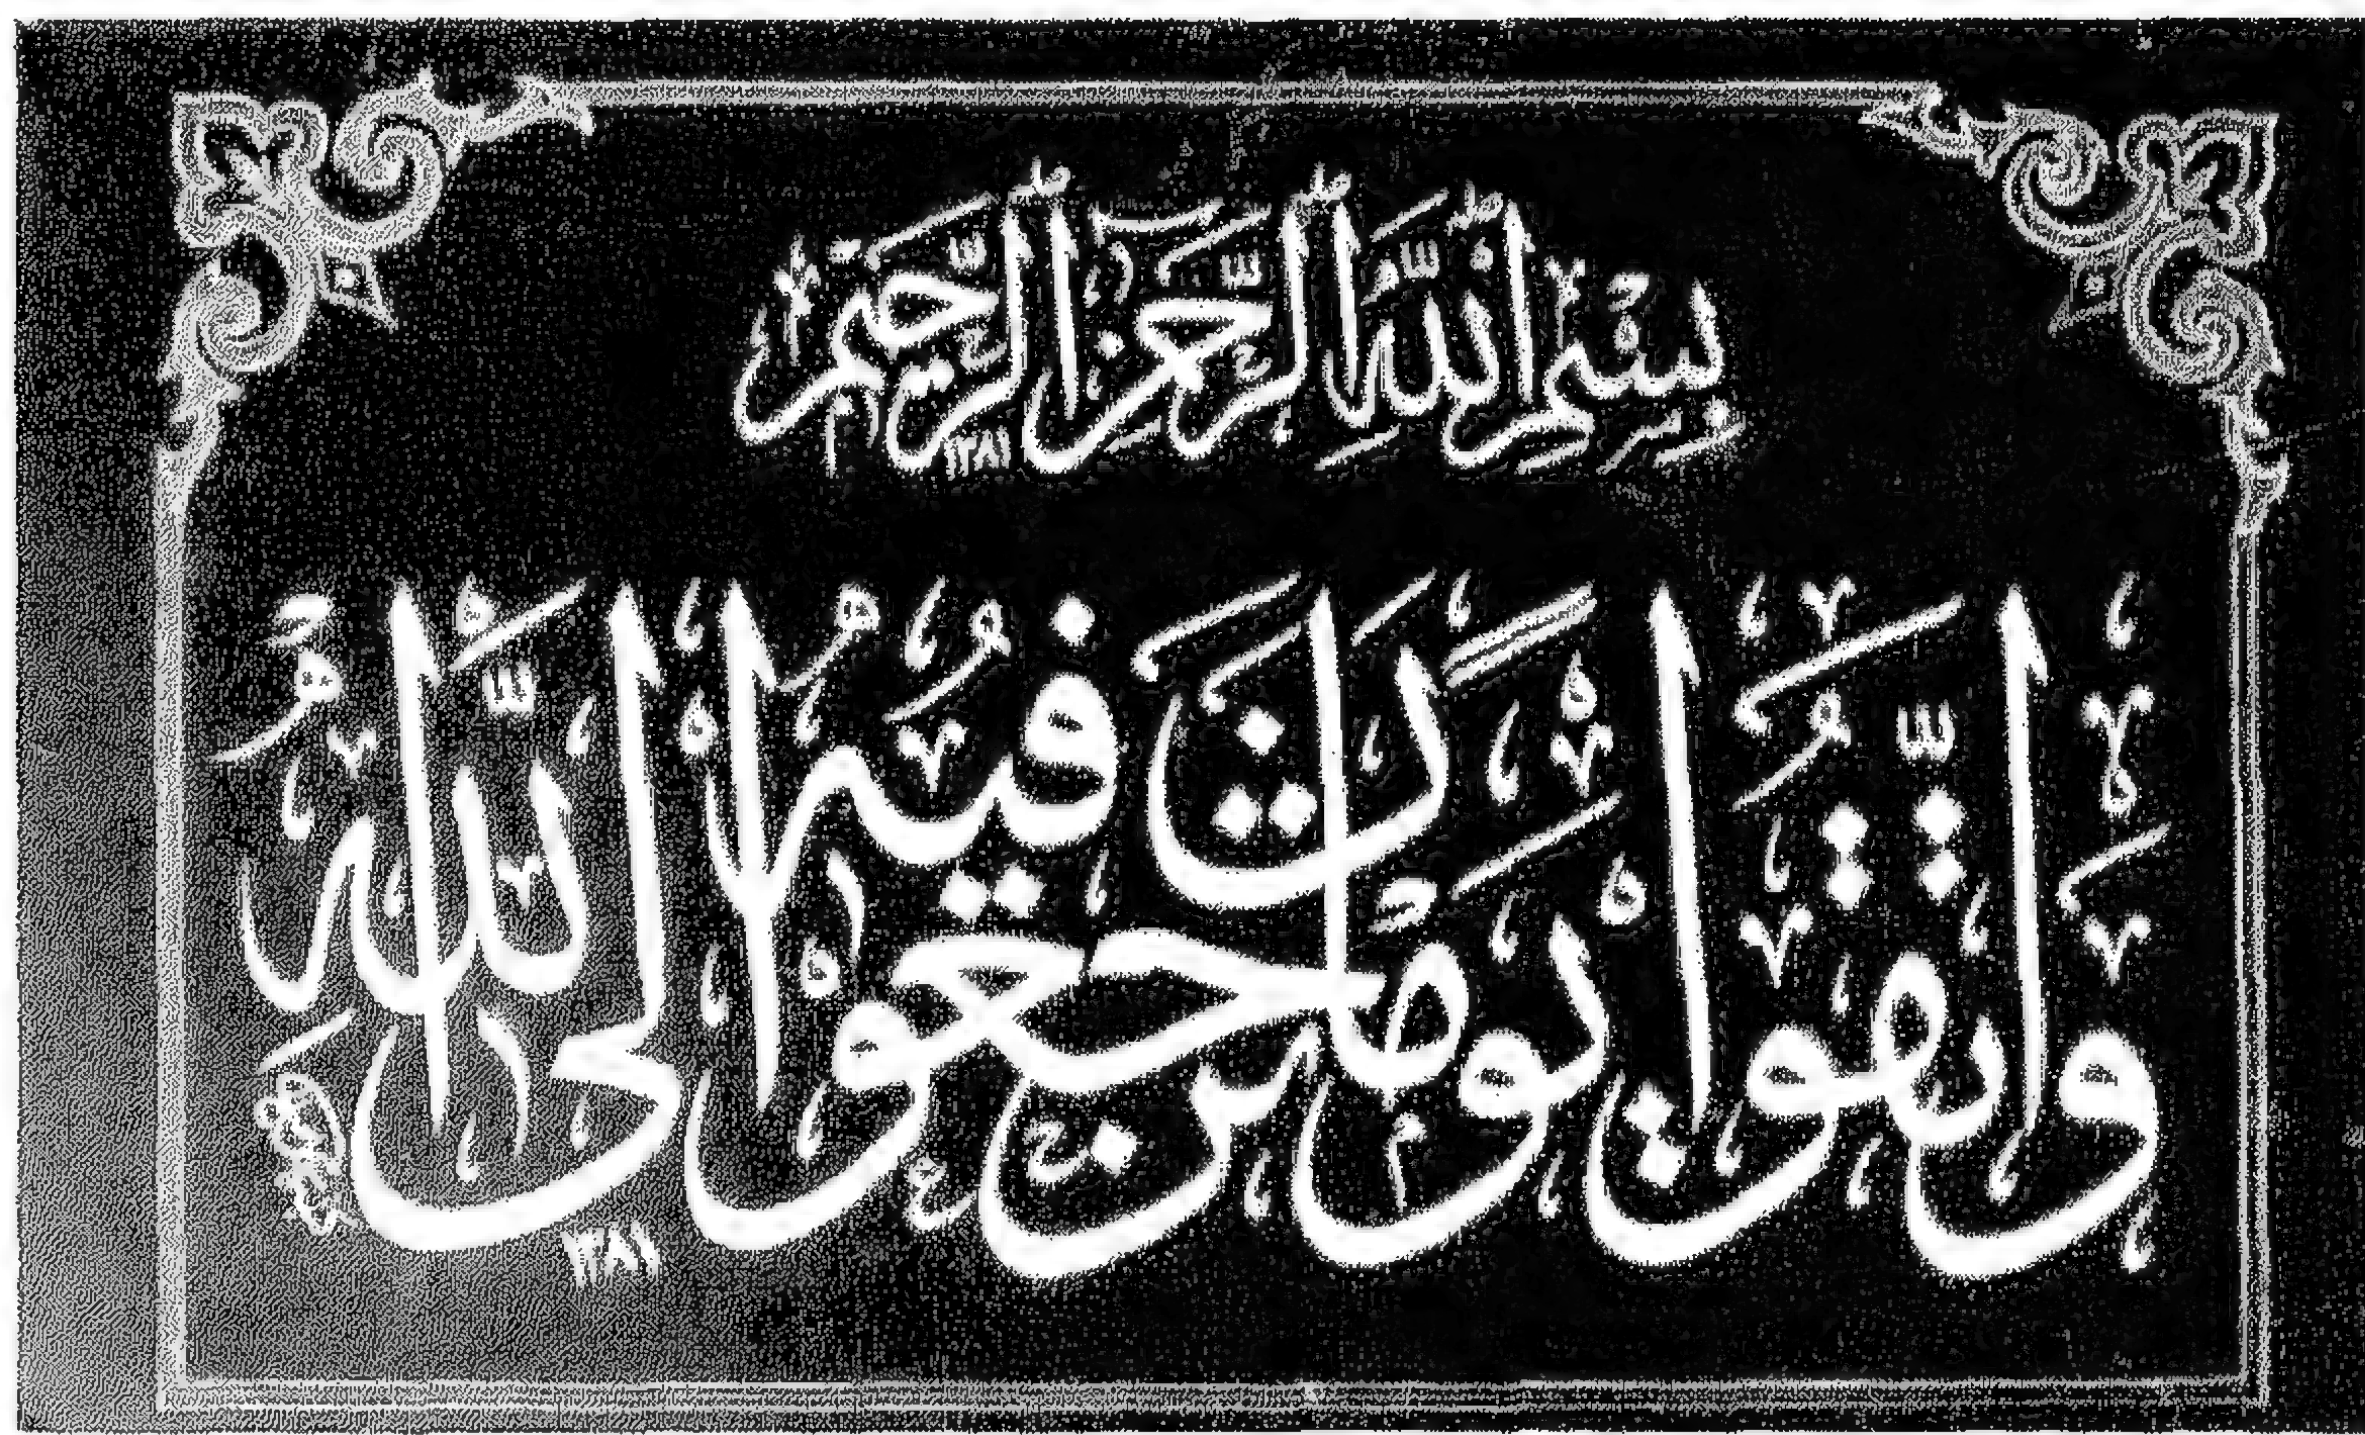 بسم الله الرحمن الرحيم
١٣٨١
واتقوا يوما ترجعون فيه الى الله
١٣٨١